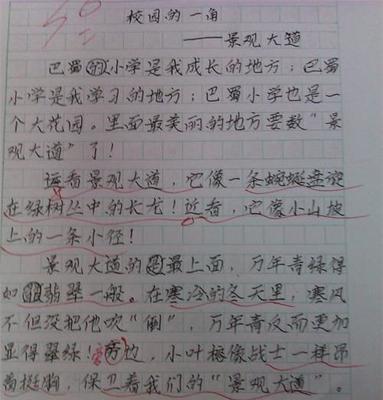 校园的一角
——景观大道
巴蜀的小学是我成长的地方；巴蜀
小学是我学习的地方；巴蜀小学也是一
个大花园。里面最美丽的地方要数“景
观大道”了！
远看景观大道，它像一条蜿蜒盘旋
在绿树丛中的长龙！近看，它像小山坡
上的一条小径！
景观大道的最上面，万年青绿得
如翡翠一般。在寒冷的冬天里，寒风
不但没把他吹“倒”，万年青反而更加
显得翠绿！旁边，小叶榕像战士一样昂
首挺胸，保卫着我们的“景观大道”。